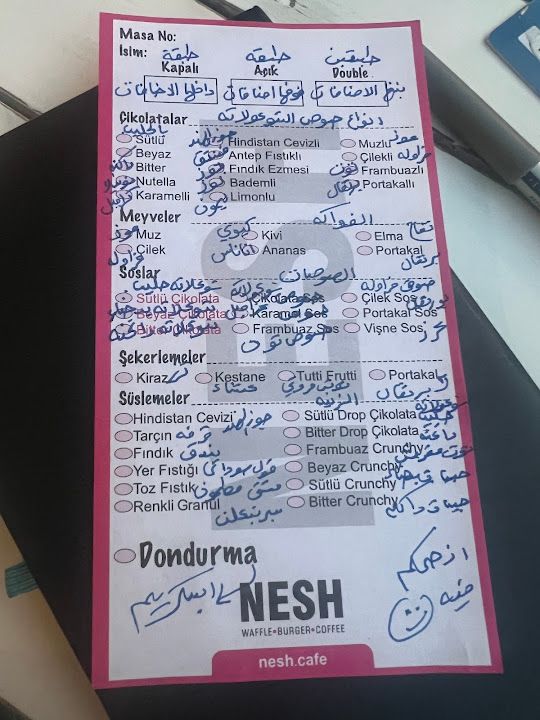 Masa No:
İsim: طبقة طبقة طبقتين
Kapalı Açık Double
داخلها الاضافات فوقها اضافات بينهم الاضافات
انواع صوص الشوكولاته
Çikolatalar
Sütlü بالحليب Hindistan Cevizli جوز الهند Muzlu موز
Beyaz Antep Fıstıklı فستق Çilekli فراولة
Bitter Fındık Ezmesi Frambuazlı توت
Nutella نوتيلا Bademli لوز Portakallı برتقال
Karamelli كراميل Limonlu ليمون
Meyveler الفواكه
Muz موز Kivi كيوي Elma تفاح
Çilek فراولة Ananas اناناس Portakal برتقال
Soslar الصوصات
Sütlü Çikolata شوكلاته حليب Çikolata Sos شوكلاته Çilek Sos صوص فراولة
Beyaz Çikolata Karamel Sos Portakal Sos برتقال
Bitter Çikolata Frambuaz Sos صوص توت Vişne Sos كرز
Şekerlemeler
Kiraz كرز Kestane كستناء Tutti Frutti توتي فروتي Portakal برتقال
Süslemeler الزينة
Hindistan Cevizi جوز الهند Sütlü Drop Çikolata
Tarçın قرفة Bitter Drop Çikolata
Fındık بندق Frambuaz Crunchy
Yer Fıstığı فول سوداني Beyaz Crunchy
Toz Fıstık فستق مطحون Sütlü Crunchy
Renkli Granül Bitter Crunchy
Dondurma
ايسكريم
انصحكم
فيه
NESH
WAFFLE•BURGER•COFFEE
nesh.cafe